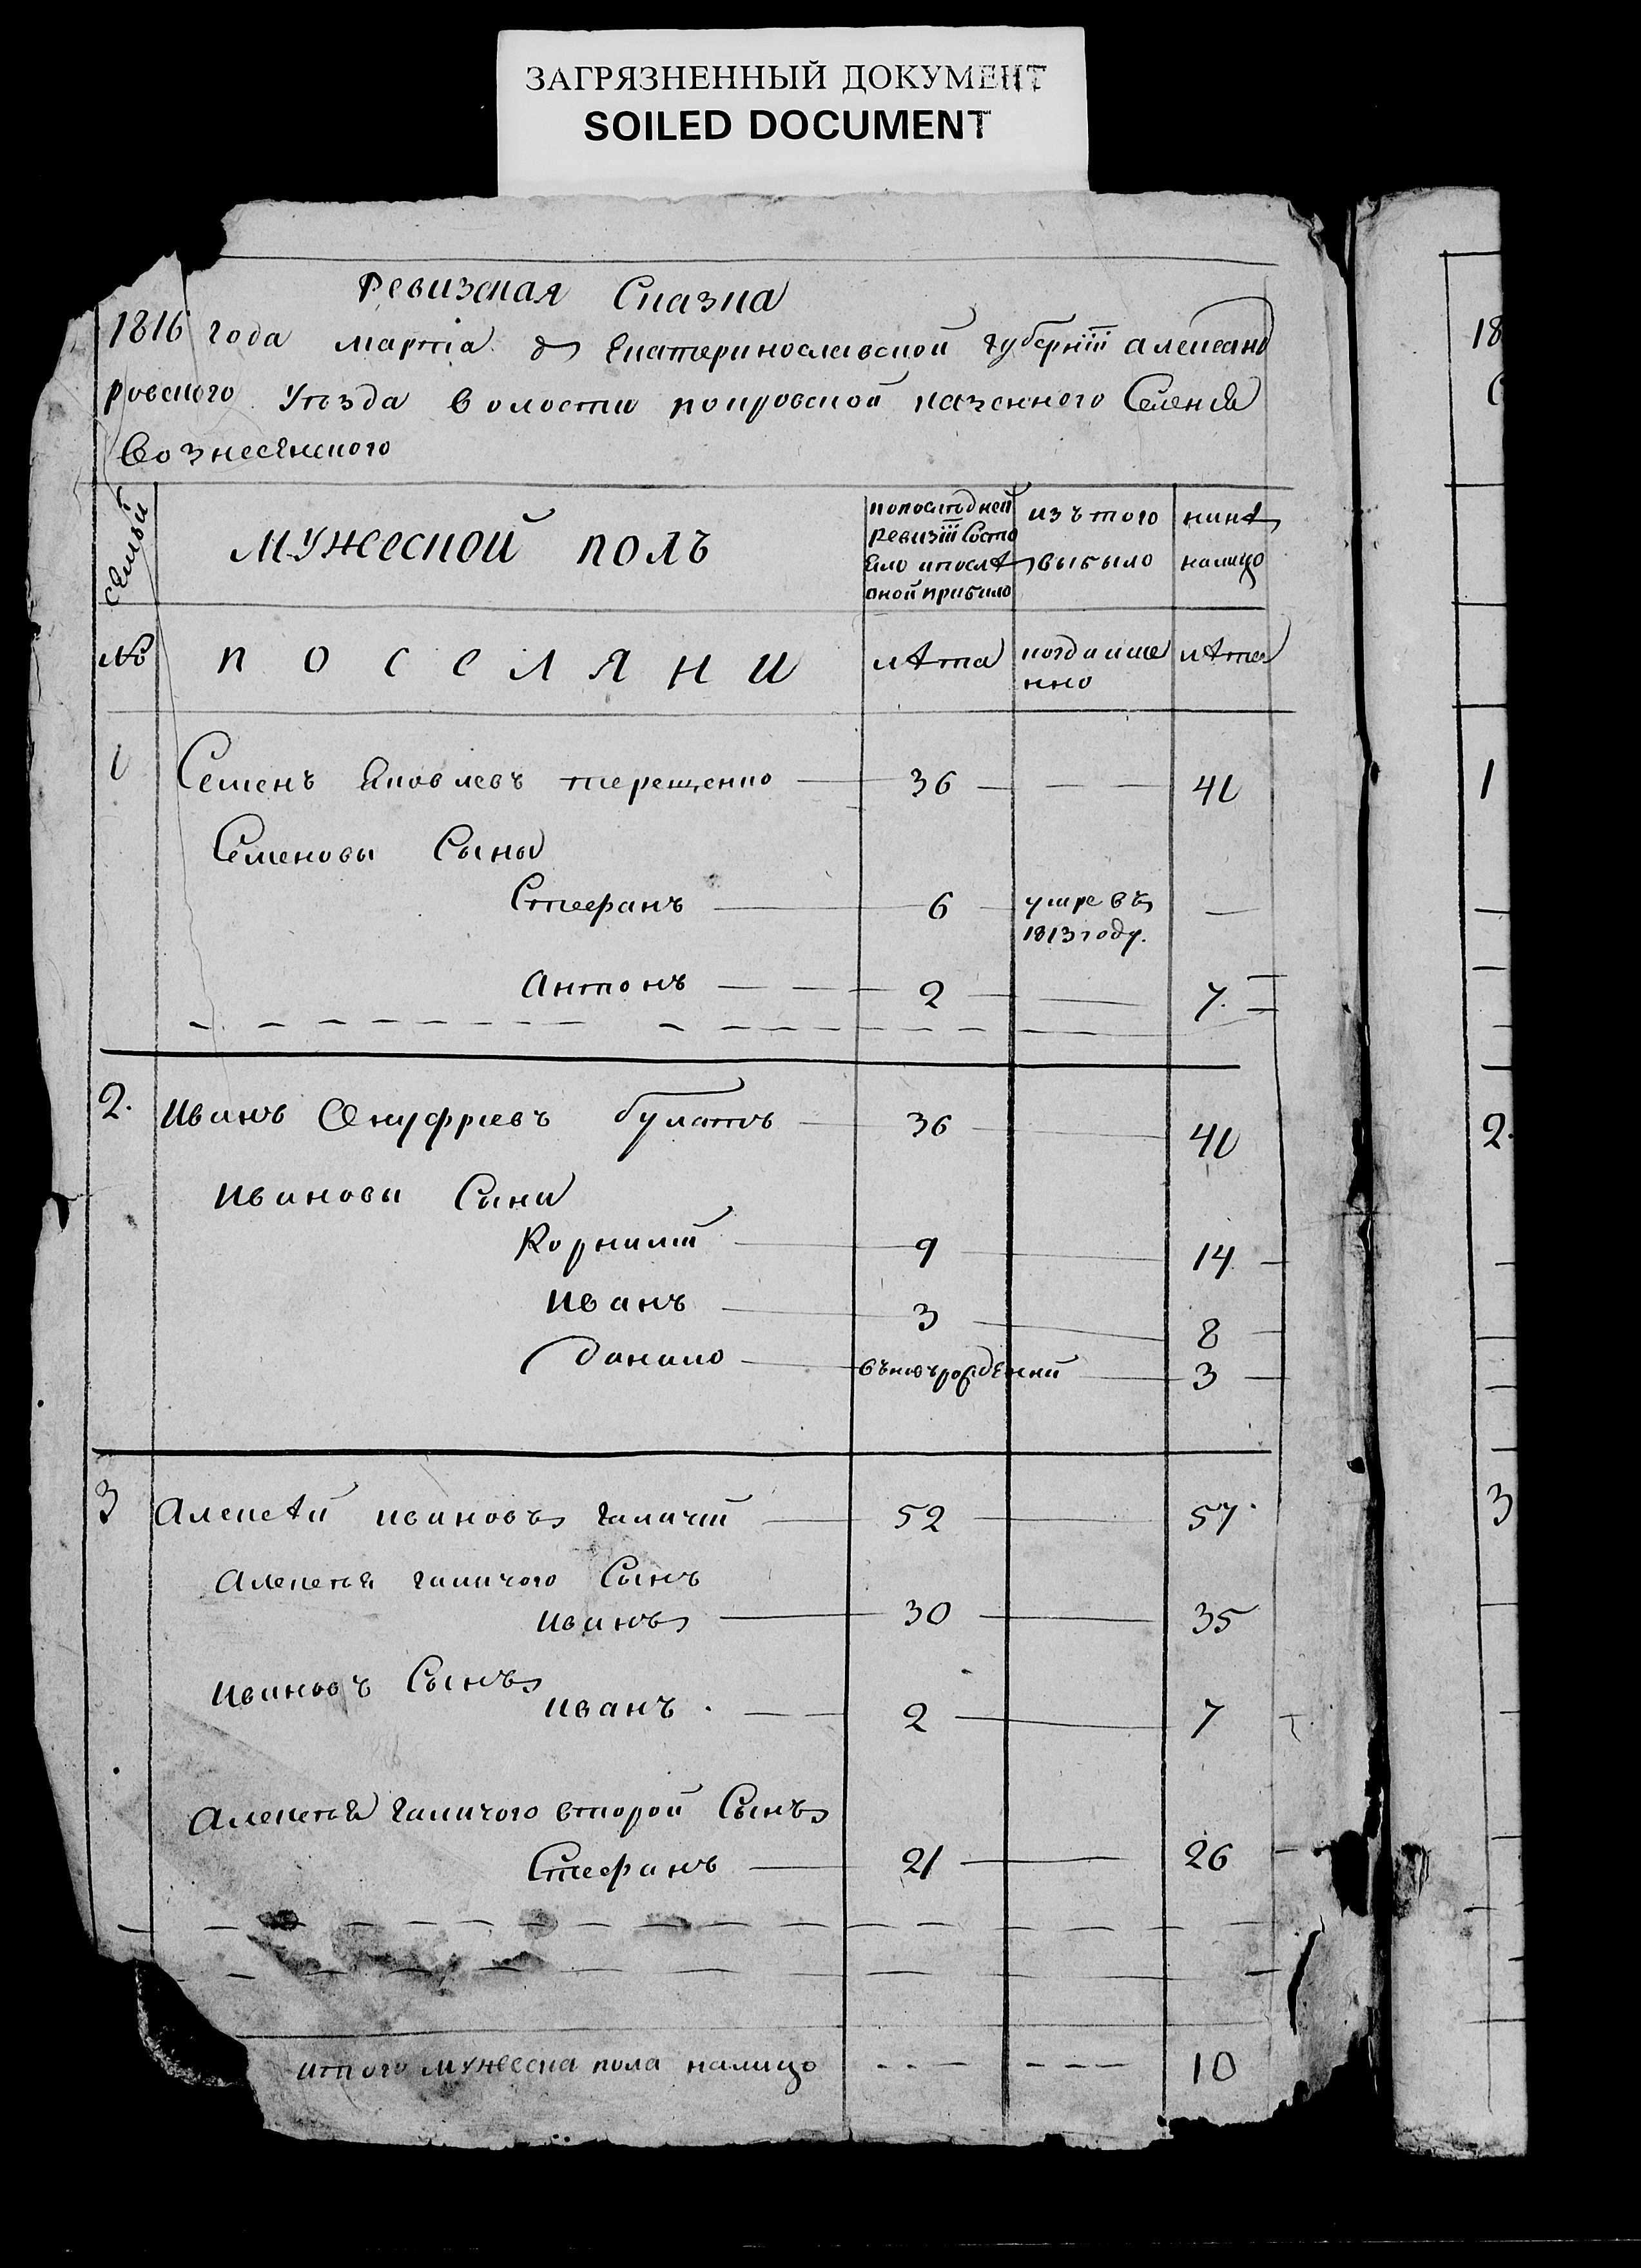 ЗАГРЯЗНЕННЫЙ ДОКУМЕНТ
SOILED DOCUMENT
Ревизская Сказка
1816 года марта Екатеринославской губернiи александ
ровского Уѣзда волости покровской казенного Селенiя
вознесенского
семьи
мужеской полъ
попоследней ревизiи Состо яло ипослѣ оной прибыло
изъ того выбыло
нинѣ налицо
№
поселяни
лѣта
когда имѧ нно
лѣта
1 Семенъ Яковлевъ терещенко 36 — — — 41
Семенови Сыны
Стефанъ 6 умре въ 1813 году. —
антонъ 2 — 7.
2. Иванъ Онуфриевъ булатъ 36 41
Иванови Сыни
Корнилiй 9 14
Иванъ 3 8
данило вновърожденни 3
3 Алексѣй ивановъ галичiй 52 57
Алексея галичого Сынъ
Иванъ 30 35
Ивановъ Сынъ
Иванъ. 2 7
Алексея галичого второй Сынъ
Стефанъ 21 26
итого мужеска пола налицо 10
18
1
2.
3